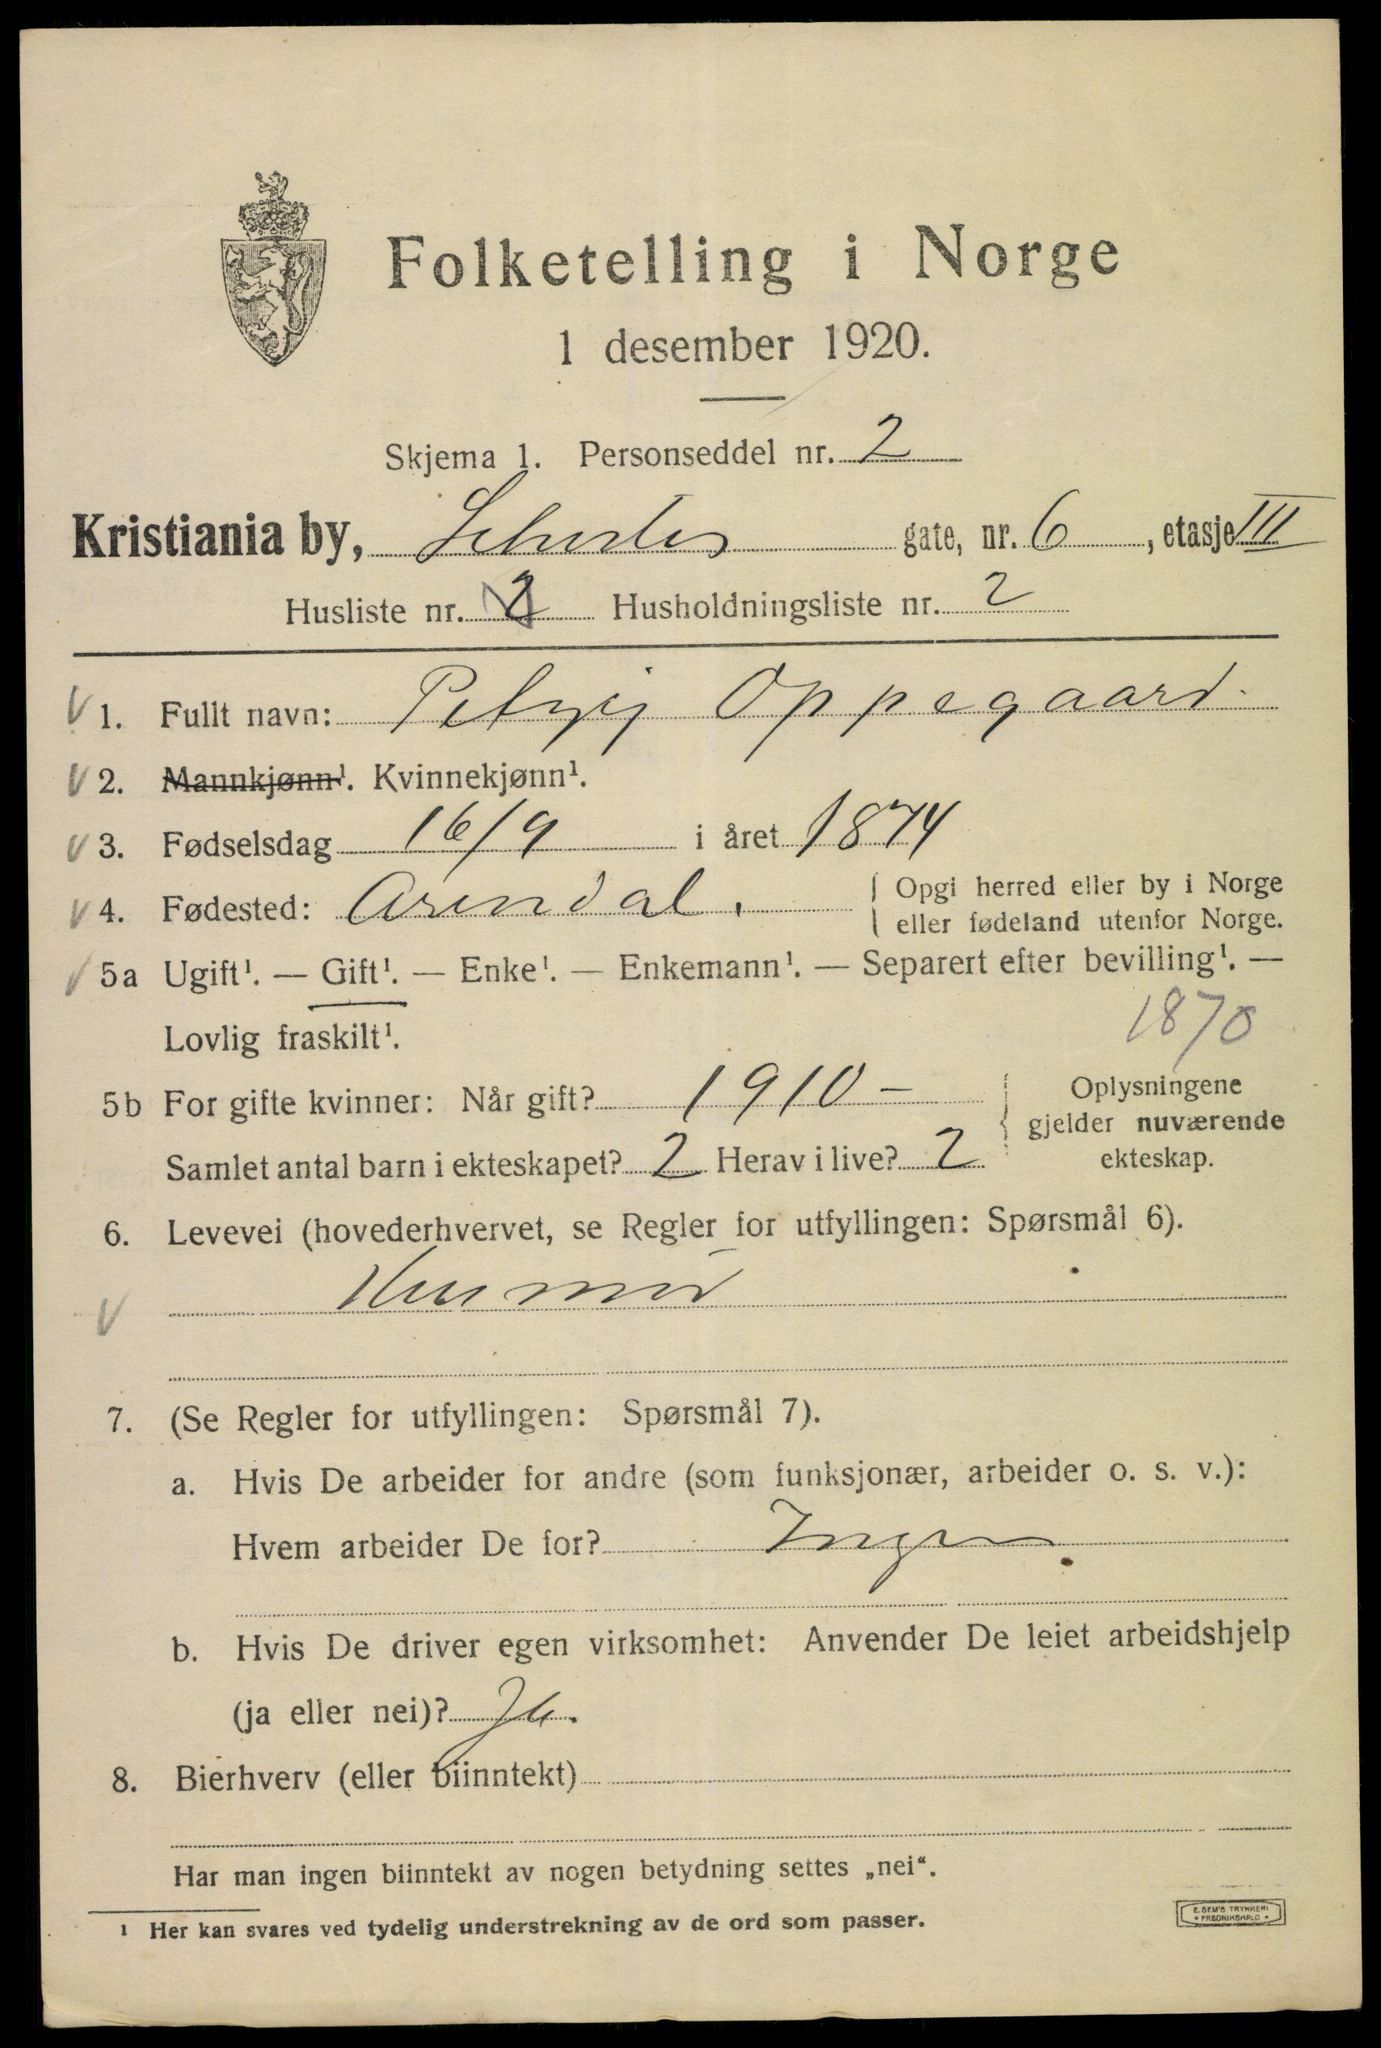 Folketelling i Norge
1 desember 1920.
Skjema 1. Personseddel nr. 2
Kristiania by, gate, nr. 6, etasje III
Husliste nr. 2 Husholdningsliste nr. 2
V 1. Fullt navn: Oppegaard.
V 2. Mannkjønn¹. Kvinnekjønn¹.
V 3. Fødselsdag 16/9 i året 1874
V 4. Fødested: Arendal. { Opgi herred eller by i Norge
eller fødeland utenfor Norge.
V 5a Ugift¹. — Gift¹. — Enke¹. — Enkemann¹. — Separert efter bevilling¹. —
Lovlig fraskilt¹.
1870
5b For gifte kvinner: Når gift? 1910 –
Samlet antal barn i ekteskapet? 2 Herav i live? 2
{ Oplysningene
gjelder nuværende
ekteskap.
6. Levevei (hovederhvervet, se Regler for utfyllingen: Spørsmål 6).
V Husmor
7. (Se Regler for utfyllingen: Spørsmål 7).
a. Hvis De arbeider for andre (som funksjonær, arbeider o. s. v.):
Hvem arbeider De for? Ingen
b. Hvis De driver egen virksomhet: Anvender De leiet arbeidshjelp
(ja eller nei)? Ja.
8. Bierhverv (eller biinntekt)
Har man ingen biinntekt av nogen betydning settes „nei“.
¹ Her kan svares ved tydelig understrekning av de ord som passer.
E. SEM'S TRYKKERI
• FREDRIKSHALD •